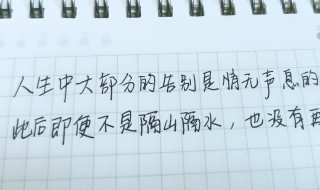 人生中大部分的告别是悄无声息的
此后即便不是隔山隔水，也没有再